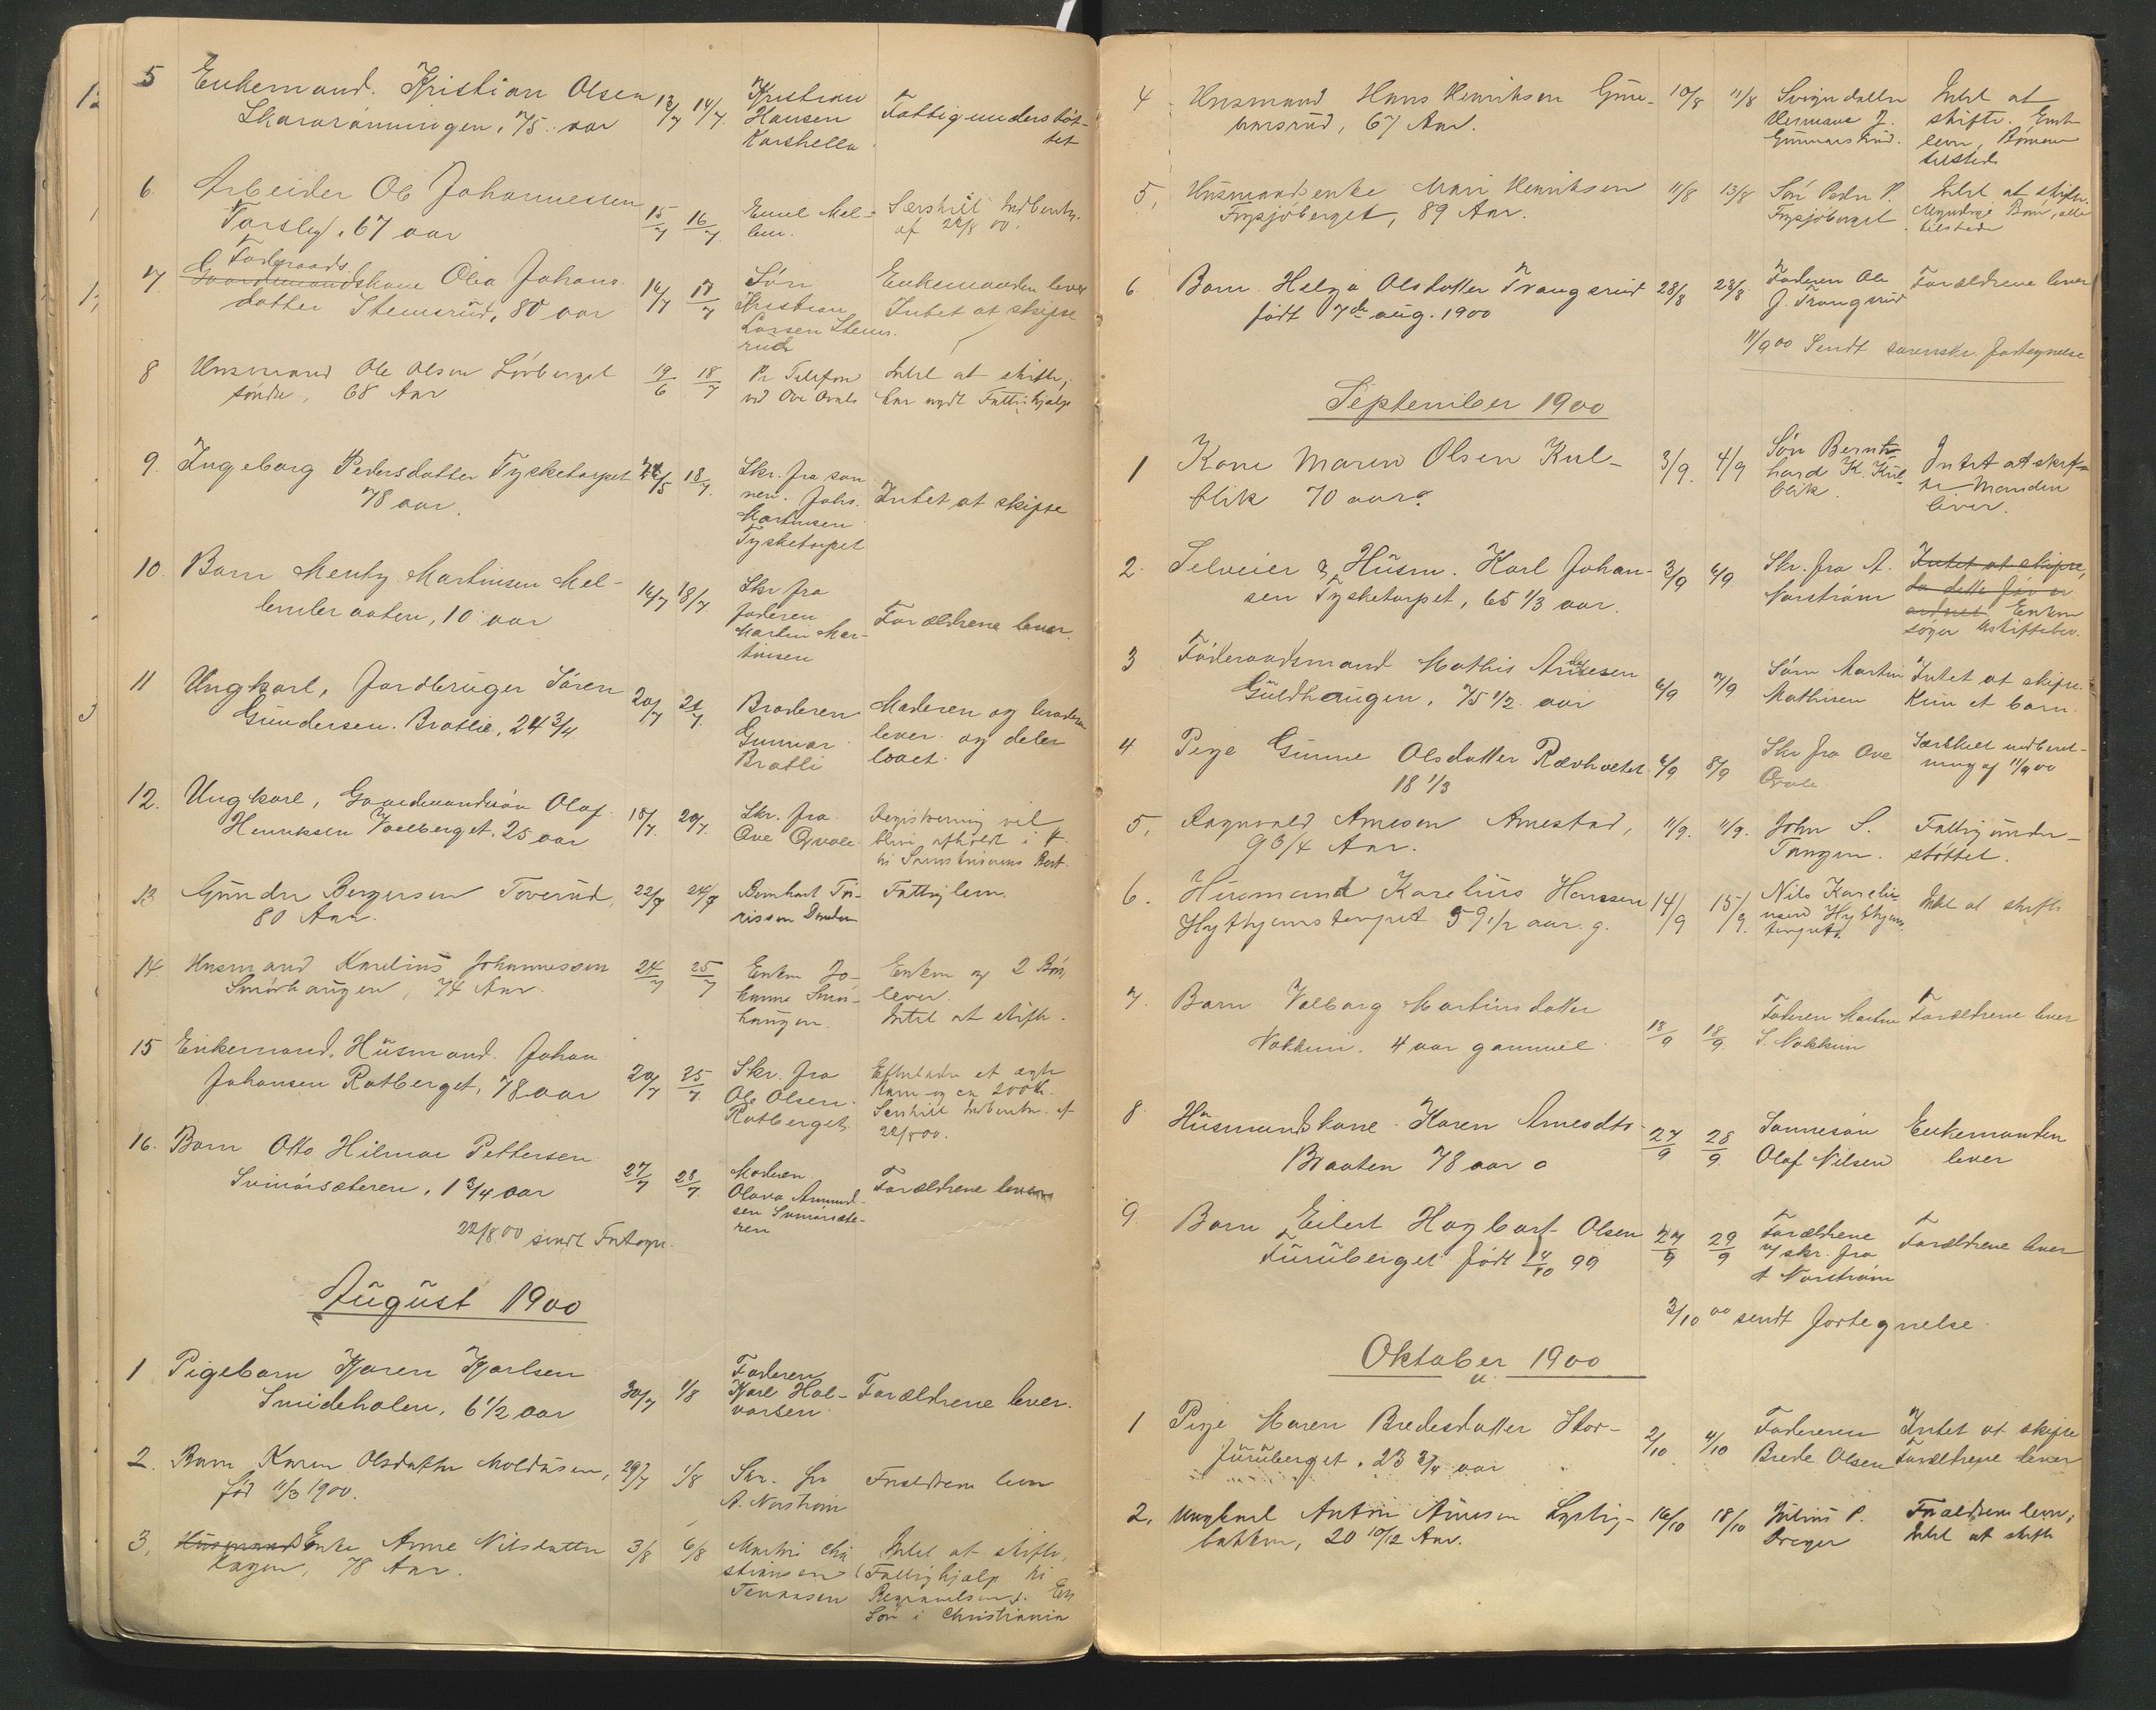 5 Enkemand. Kristian Olsen 13/7 14/7 Kristian Fattigunderstøt-
Skararønningen, 75 aar Hansen tet
Karshella
6 Arbeider Ole Johannessen
Torsby, 67 aar 15/7 16/7 Emil Mel- Særskilt Indberetn.
lem. af 22/8 00.
Føderaads
7. Gaardmandskone Olea Johans 14/7 17/7 Søn Enkemanden lever
datter Stemsrud, 80 aar Kristian Intet at skifte
Larsen Stems
rud
8 Husmand Ole Olsen Løvberget 19/6 18/7 Pr Telefon Intet at skifte,
søndre, 68 Aar ved Ove Qvale har nydt Fattighjælp
9. Ingeborg Pedersdatter Tysketorpet 18/7. Skr. fra søn
78 aar. nen. Johs. Intet at skifte
Martinsen
Tysketorpet
10. Barn Menty Martinsen Mel- 16/7 18/7. Skr fra
lembraaten, 10 aar faderen Forældrene lever.
Martin Mar-
tinsen
11 Ungkarl, Jordbruger Søren 20/7 21/7. Broderen Moderen og brødre
Gundersen. Bratlie, 24 3/4 Gunnar lever og deler
Bratli boet.
12. Ungkarl, Gaardmandssøn Olaf 15/7. 20/7. Skr. fra Registrering vil
Henriksen Voelberget. 25 aar Ove Qvale blive afholdt i
13 Gunder Bergersen Toverud, 22/7 24/7 Bernhart Fattiglem.
80 Aar.
14 Husmand Karelius Johannessen 24/7 25/7 Enken Jo- Enken og 2 Børn
Smørhaugen, 74 Aar. hanne Smør- lever.
haugen. Intet at skifte.
15 Enkemand. Husmand. Johan
Johansen Rotberget, 78 aar 20/7 25/7. Skr. fra Efterlader et ægte
Ole Olsen Barn og ca 200 Kr.
Rotberget. Særskilt Indberetn. af
22/8 00.
16. Barn Otto Hilmar Pettersen 27/7 28/7. Moderen
Svinørsæteren, 1 3/4 aar Olava Amund- Forældrene lever
sen Svinørsæte-
ren
22/8 00 sendt Fortegn.
August 1900
1 Pigebarn Karen Karlsen 30/7 1/8 Faderen
Smideholen, 6 1/2 aar Karl Hal- Forældrene lever.
vorsen
2. Barn Karen Olsdatter Moldusen, 29/7 1/8 Skr. fra Forældrene lever
fød 11/3 1900. A. Norstrøm
3. Husmands Enke Anne Nilsdatter 3/8 6/8 Martin Chri Intet at skifte,
Kagen, 78 Aar. stiansen (Fattighjælp til
Tenaasen Begravelsen). En
Søn i Christiania
4 Husmand Hans Henriksen Gun- 10/8 11/8 Svigerdatter Intet at
narsrud, 67 Aar. Hermane J. skifte. Enke
Gunnarsrud. lever, Børnene
tilstede
5, Husmandsenke Mari Henriksen 11/8 13/8 Søn Peder P. Intet at skifte.
Frysjøberget, 89 Aar. Frysjøberget Myndige Børn, alle
tilstede
6. Barn Helga Olsdatter Trangsrud 28/8 28/8. Faderen Ole Forældrene lever
født 7de aug. 1900 J. Trangsrud
11/9 00 Sendt sorenskr. fortegnelse
September 1900
1 Kone Maren Olsen Kul- 3/9. 4/9 Søn Bern- Intet at skif-
blik 70 aar. hard K. Kul- te Manden
blik. lever.
2. Selveier & Husm. Karl Johan- 3/9 6/9 Skr. fra A. Intet at skifte,
sen Tysketorpet, 65 1/3 aar. Norstrøm da dette før er
ordnet Enken
søger Uskiftebev.
3 Føderaadsmand Mathis Andresen 6/9 7/9 Søn Martin Intet at skifte.
Guldhaugen, 75 1/2 aar Mathisen Kun et barn.
4 Pige Gunne Olsdatter Rævholtet 6/9 8/9 Skr fra Ove Særskilt indberet-
18 1/3 Qvale ning af 11/9 00
5, Ragnvald Arnesen Arnestad, 11/9. 11/9. John S. Fattigunder-
9 3/4 Aar. Tangen. støttet.
6. Husmand Karelius Hansen 14/9 15/9. Nils Kareliu- Intet at skifte
Hythjernstorpet 59 1/2 aar. g. ssen Hythjerns
torpet.
7. Barn Valborg Martinsdatter Faderen Martin Forældrene lever
Nokken. 4 aar gammel 18/9 18/9. S. Nokken
8 Husmandskone Karen Arnesdtr 27/9 28/9 Sønnesøn Enkemanden
Braaten 78 aar Olaf Nilsen lever
9. Barn Eilert Hagbart Olsen 27/9 29/9 Forældrene Forældrene lever
Furuberget født 14/10 99 v/ skr. fra
A Norstrøm
3/10 00 sendt fortegnelse
Oktober 1900
1 Pige Maren Bredesdatter Stor- 2/10 4/10 Faderen Intet at skifte
furuberget. 23 3/4 aar Brede Olsen Forældrene lever
2. Ungkarl Anton Arnesen Lystig- 16/10 18/10 Julius P. Forældrene lever,
bakken, 20 10/12 Aar. Dreyer Intet at skifte